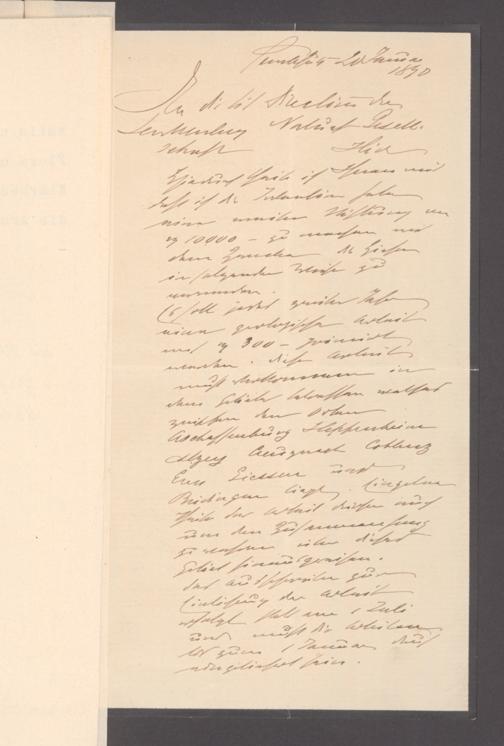 Frankfurt 20 Januar
1890
An die tit Direction der
Senckenberg Naturf Gesell-
schaft Hier
Hierdurch theile ich Ihnen mit
daß ich die Intention habe
eine weitere Stiftung von
M 10000 – zu machen und
dem Zwecke die Zinsen
in folgender Weise zu
verwenden.
Es soll jedes zweite Jahr
eine geologische Arbeit
mit M 300 – prämiirt
werden. Diese Arbeit
muß vorkommen in
dem Gebiet welches
zwischen den Orten
Aschaffenburg Heppenheim
Alzey Creuznach Coblenz
Ems Giessen und
Büdingen liegt. Einzelne
Theile der Arbeit dürfen auch
um den Zusammenhang
zu wahren über dieses
Gebiet hinausgreifen.
Das Ausschreiben zur
Einlösung der Arbeit
erfolgt am 1 Juli
und muß die Arbeit
bis zum 1 Januar
eingeliefert sein.